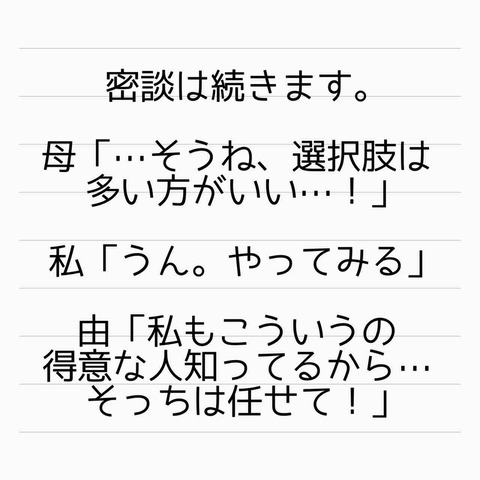 密談は続きます。
母「…そうね、選択肢は
多い方がいい…！」
私「うん。やってみる」
由「私もこういうの
得意な人知ってるから…
そっちは任せて！」